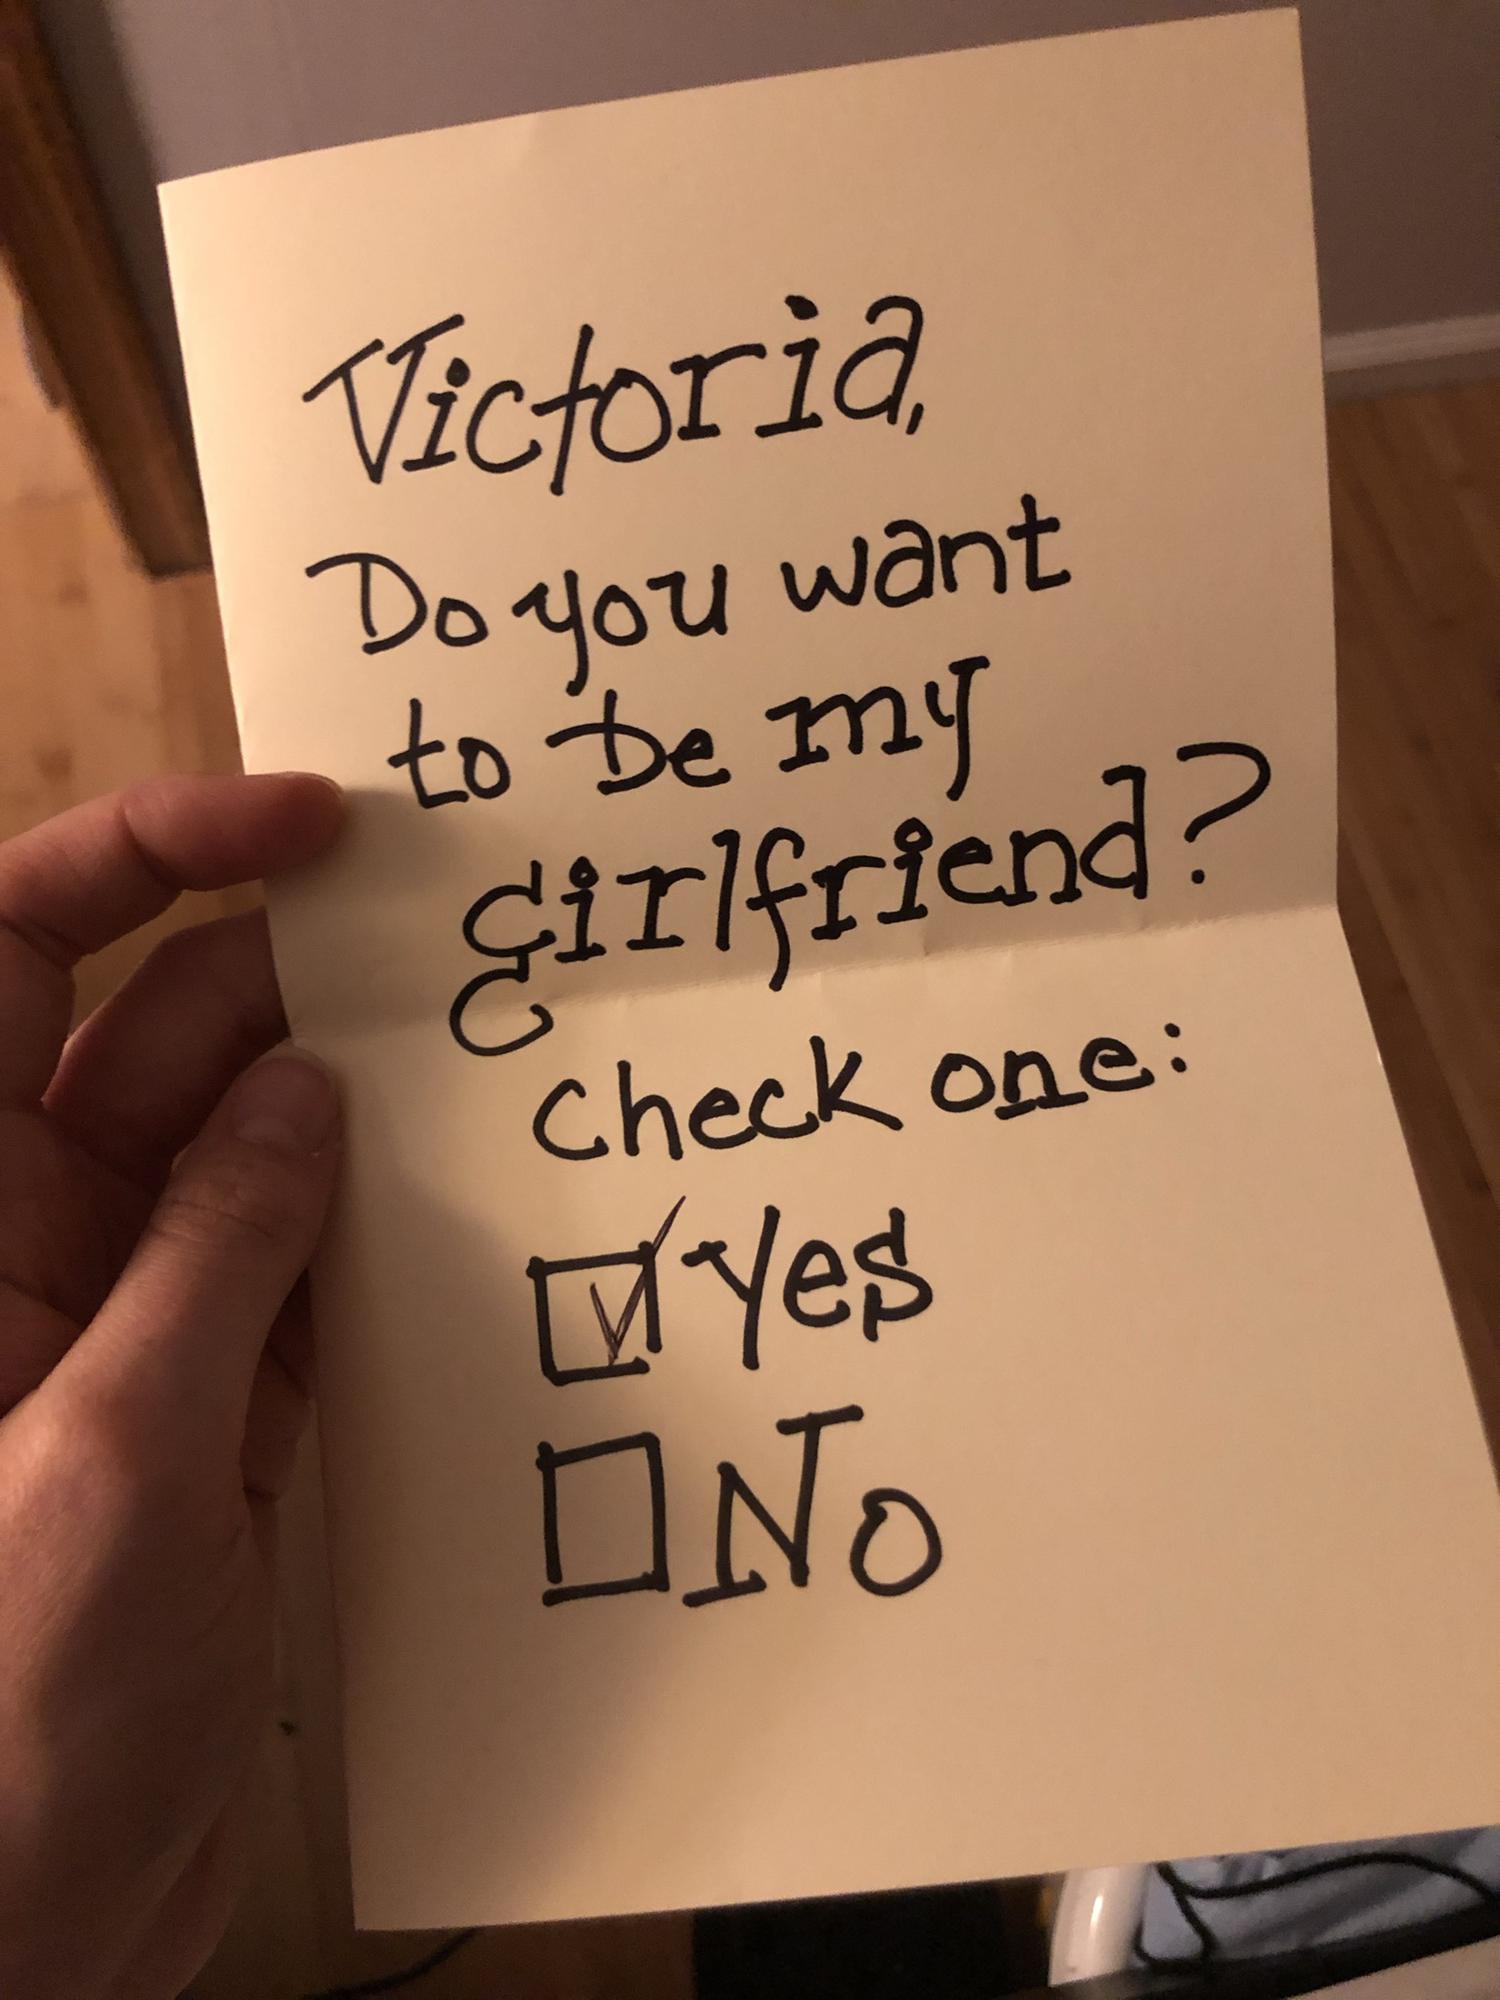 Victoria,
Do you want
to be my
girlfriend?
Check one:
☑ Yes
☐ No